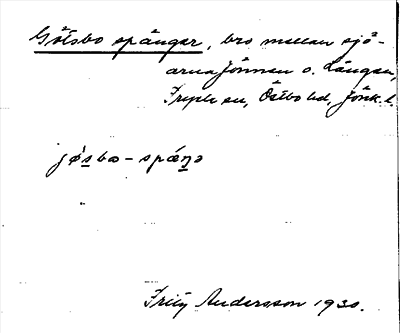 Götsbo spångar, bro mellan sjö-
arna Jönnen o. Lången,
sn, Östbo hd, Jönk. l.
jǿsbo-spáŋə
Fritz Andersson 1930.